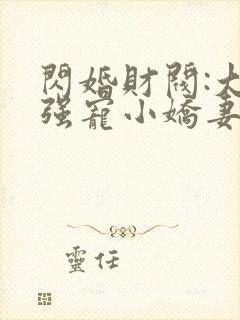 閃婚財閥:大
强寵小嬌妻
靈任